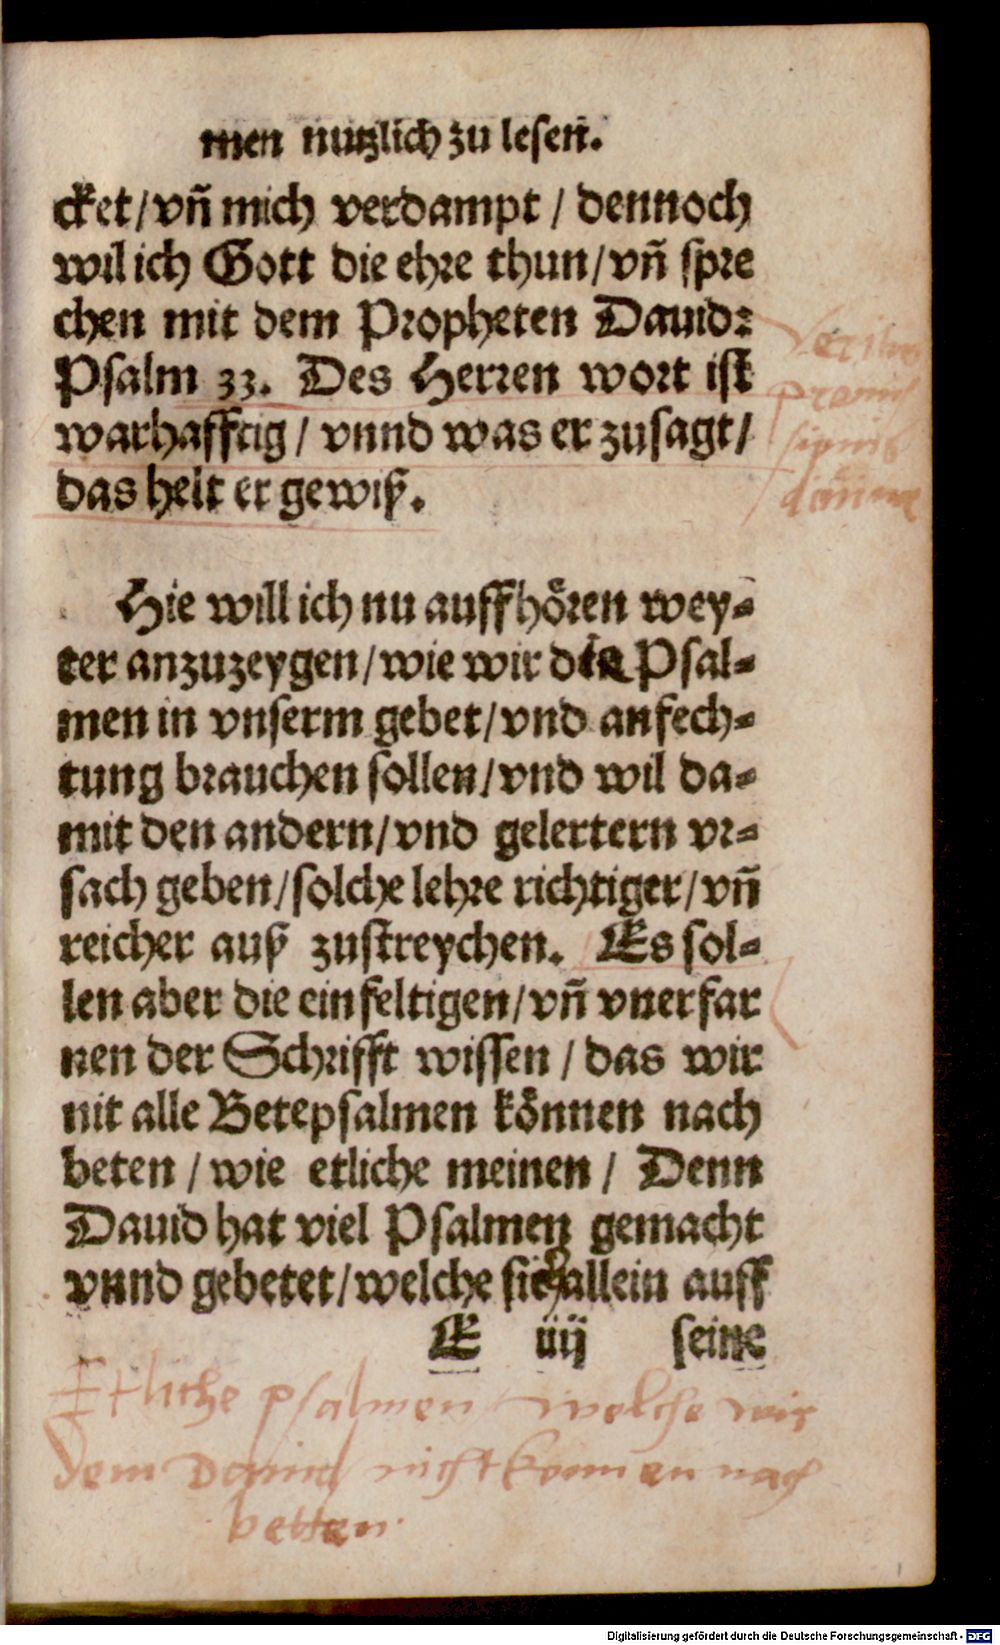 men nutzlich zu lesen.
cket / vñ mich verdampt / dennoch
wil ich Gott die ehre thun / vñ spre
chen mit dem Propheten Dauid:
Psalm 33. Des Herren wort ist
warhafftig / vnnd was er zusagt /
das helt er gewiß.
Hie will ich nu auffhören wey-
ter anzuzeygen / wie wir die Psal-
men in vnserm gebet / vnd anfech-
tung brauchen sollen / vnd wil da-
mit den andern / vnd gelertern vr-
sach geben / solche lehre richtiger / vñ
reicher auß zustreychen. Es sol-
len aber die einfeltigen / vñ vnerfar
nen der Schrifft wissen / das wir
nit alle Betepsalmen können nach
beten / wie etliche meinen / Denn
Dauid hat viel Psalmen gemacht
vnnd gebetet / welche sich allein auff
E iiij seine
Etliche psalmen welche wir
dem Dauid nicht konnen nach
betten.
Digitalisierung gefördert durch die Deutsche Forschungsgemeinschaft - DFG